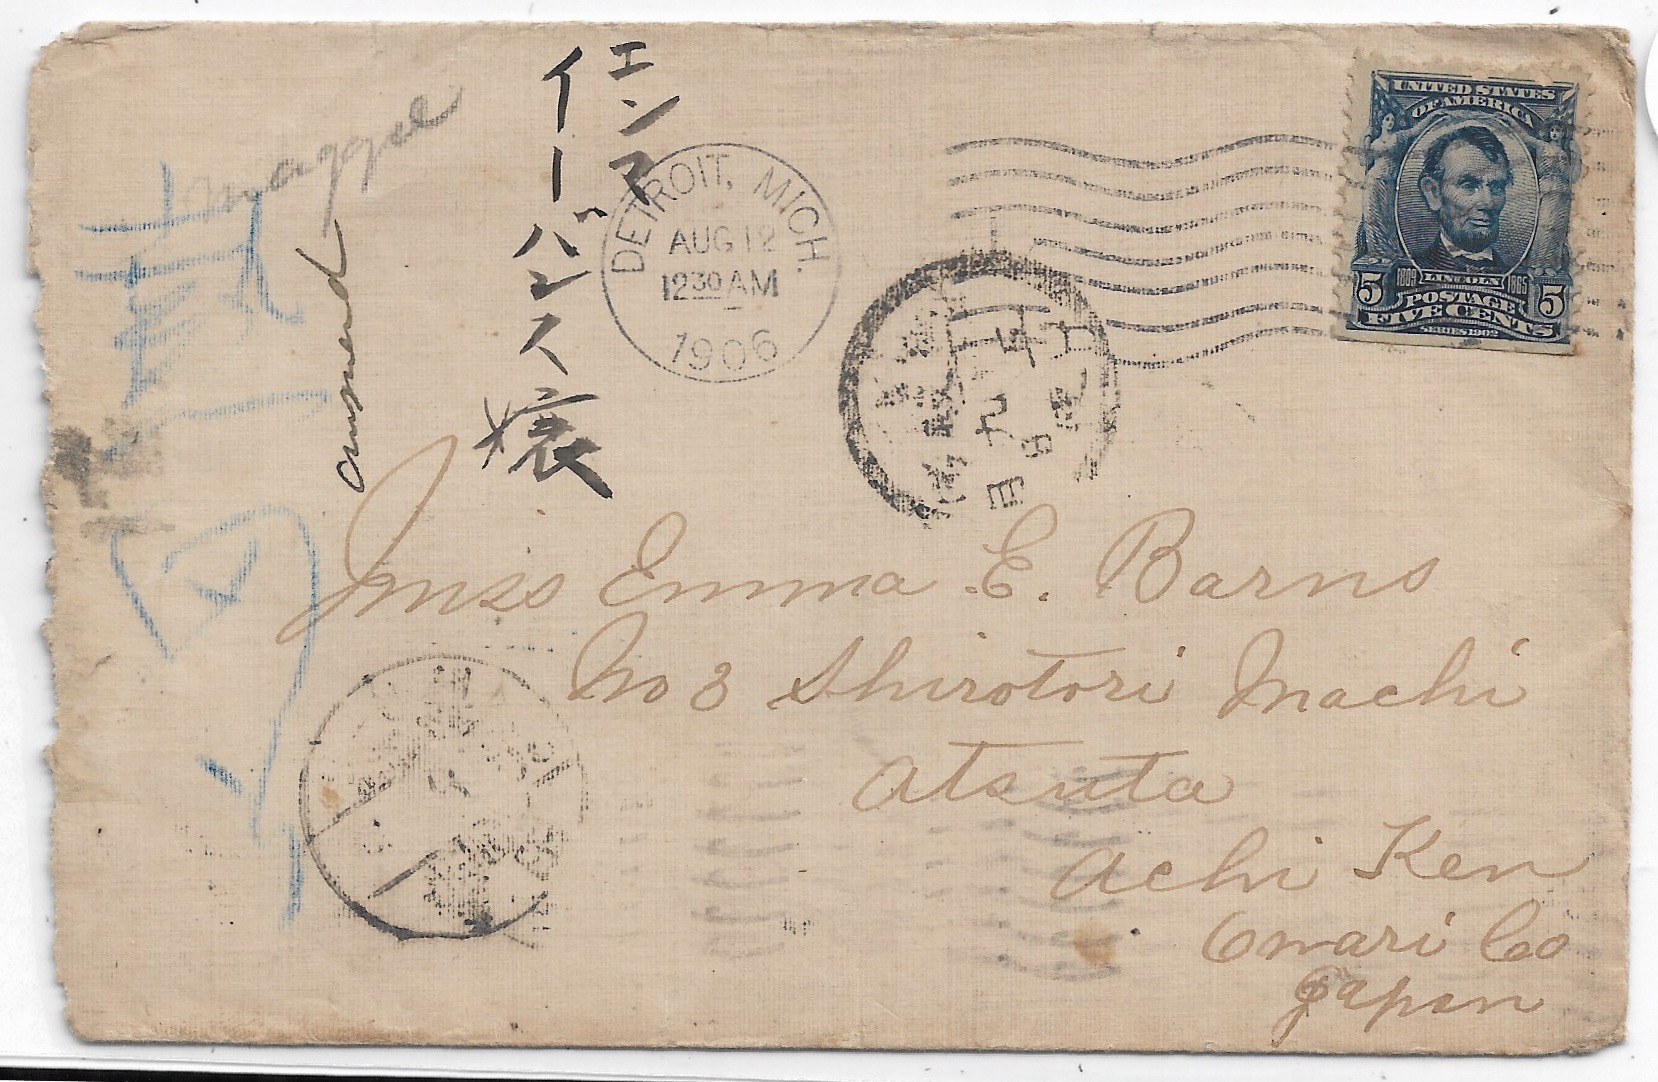 エンマ
イーバンス嬢
Maggie
answered
DETROIT, MICH.
AUG 12
12 30 AM
1906
UNITED STATES
OF AMERICA
1809 LINCOLN 1865
5 POSTAGE 5
FIVE CENTS
SERIES 1902
九月
九日
Miss Emma E. Barns
No 3 Shirotori Machi
Atsuta
Achi Ken
Owari Co
Japan